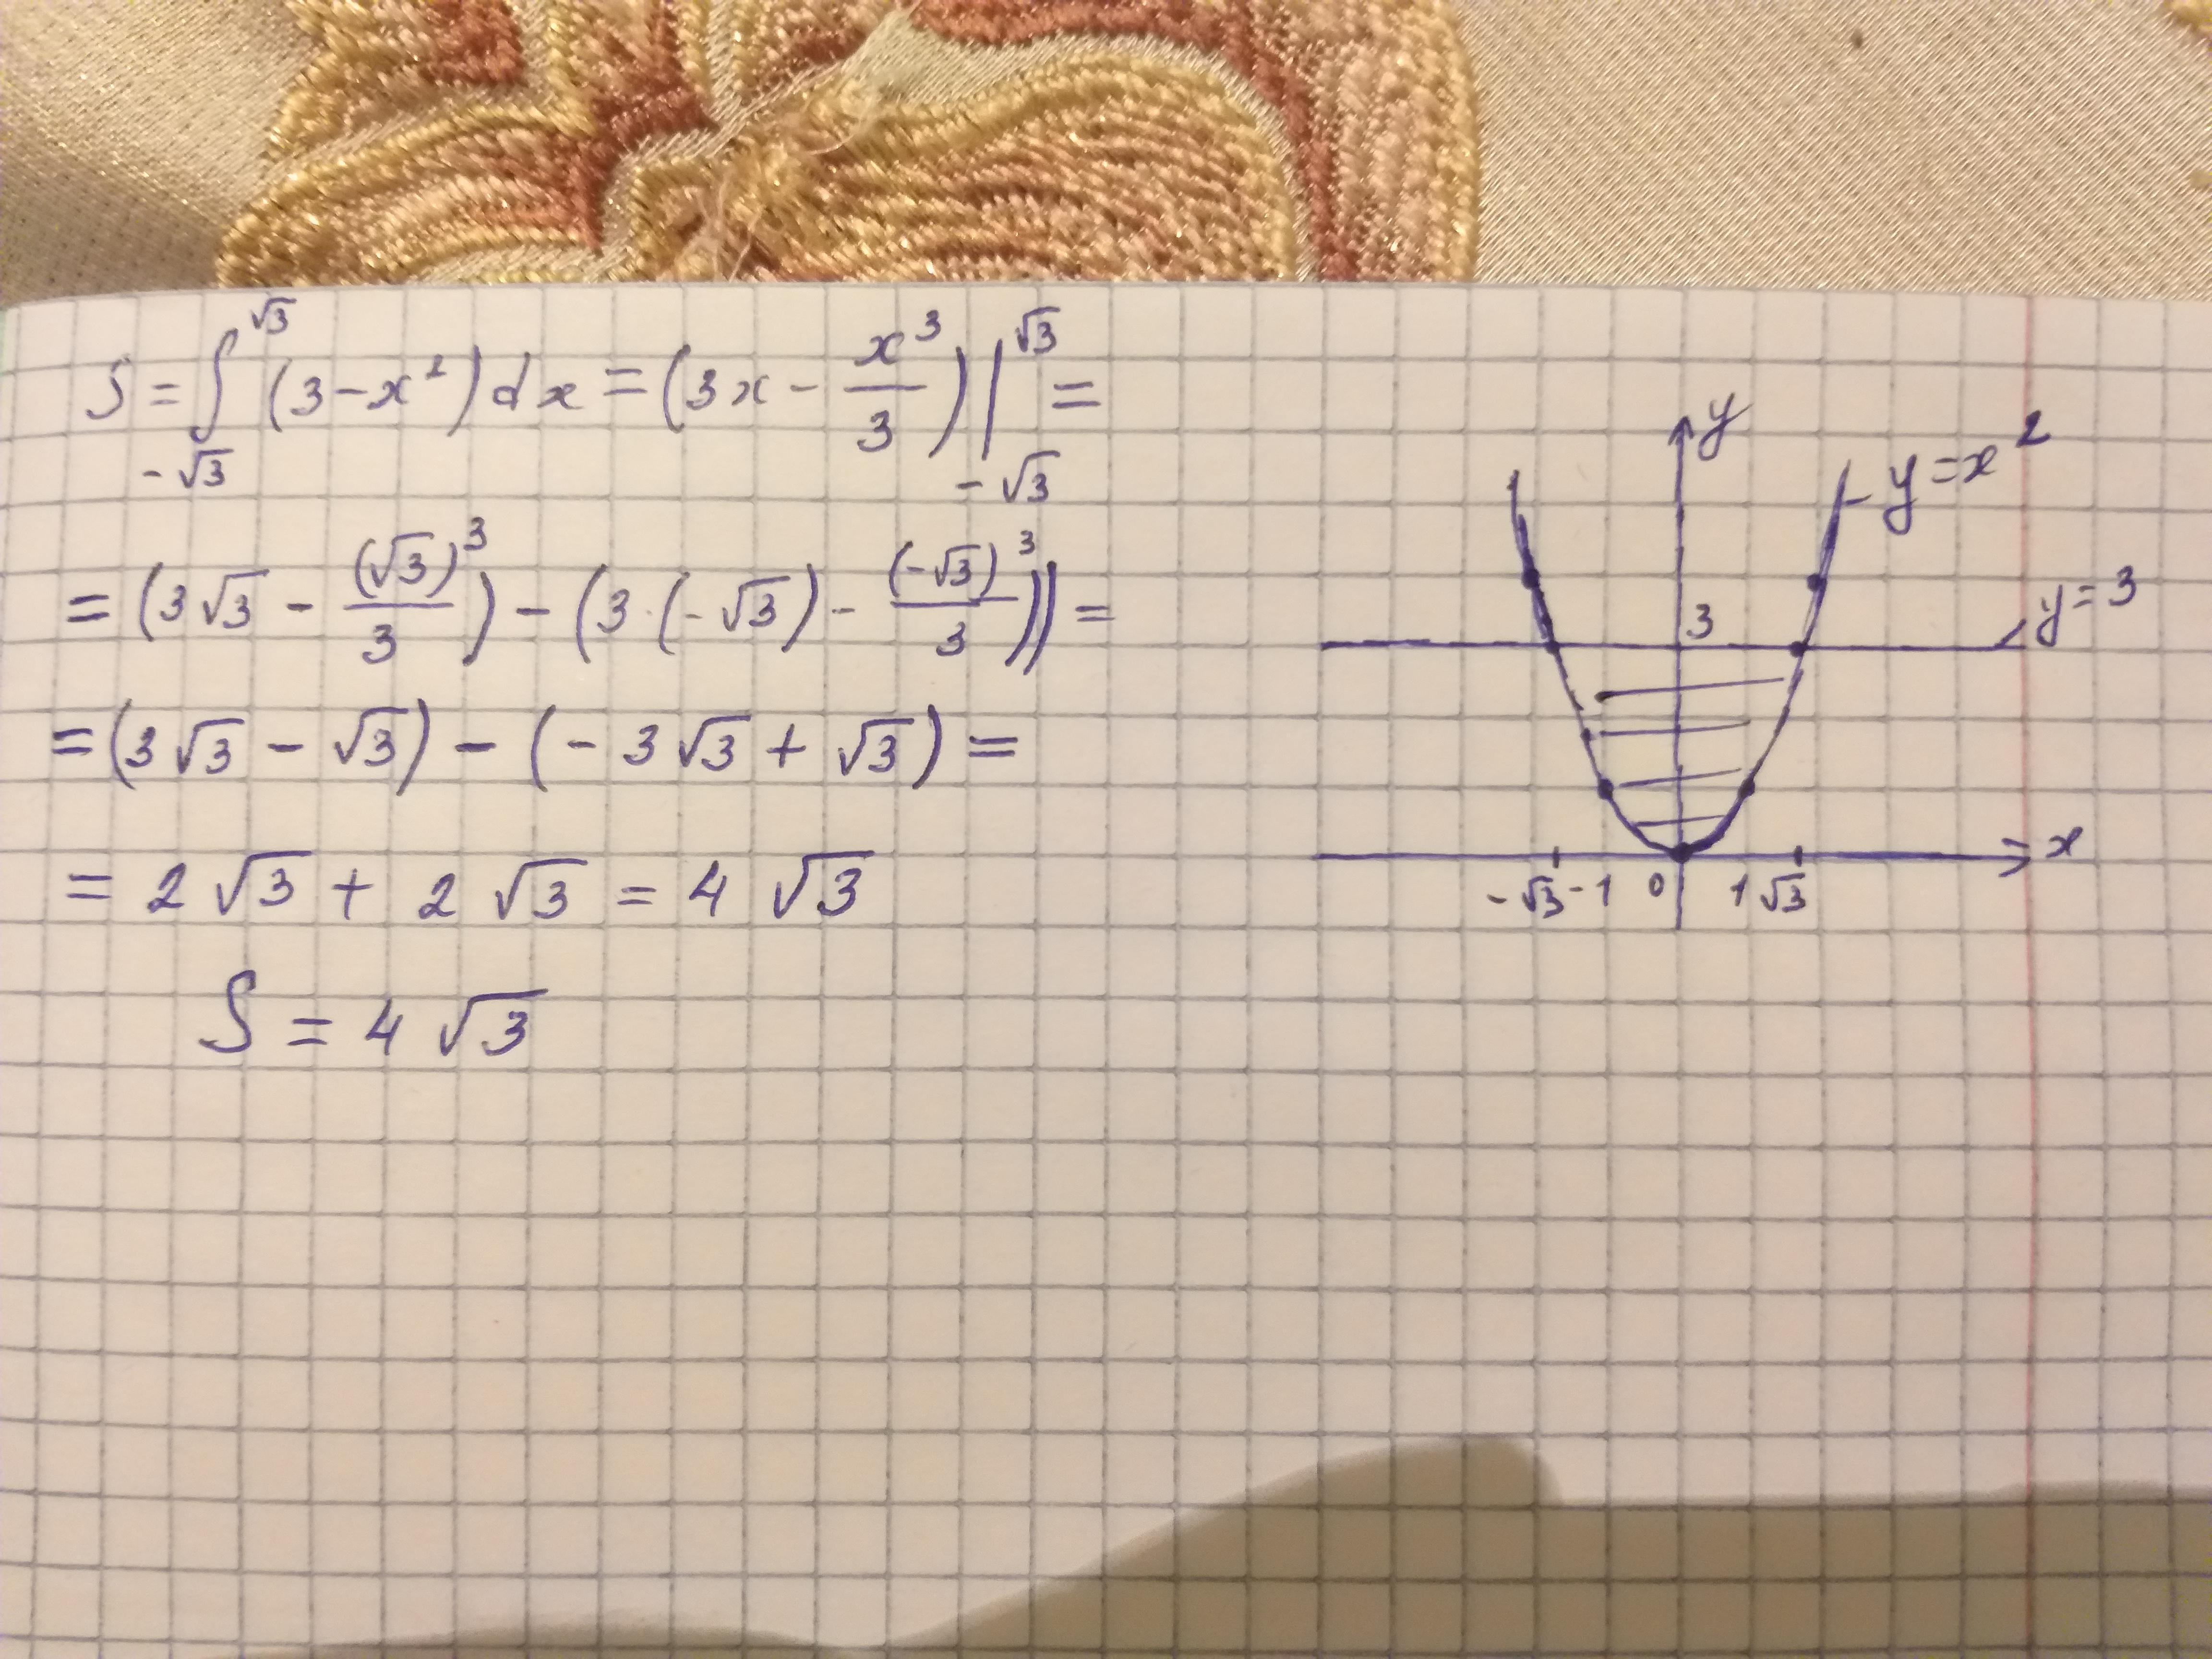 S = ∫_{-√3}^{√3} (3 - x²) dx = (3x - x³/3) |_{-√3}^{√3} =
= (3√3 - (√3)³/3) - (3·(-√3) - (-√3)³/3)) =
= (3√3 - √3) - (-3√3 + √3) =
= 2√3 + 2√3 = 4√3
S = 4√3
y
y = x²
3
y = 3
x
-√3 -1 0 1 √3